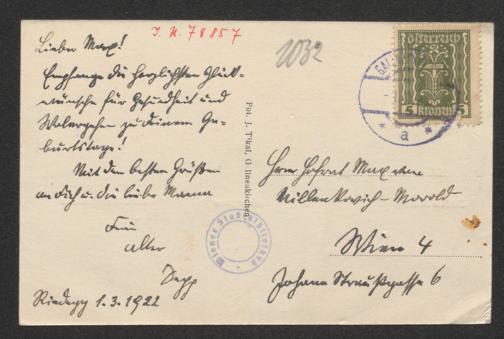 J. N. 78857
1032
Lieber Max!
Empfange die herzlichsten Glück-
wünsche für Gesundheit und
Wolergehen zu Deinem Ge-
burtstage!
Mit den besten Grüßen
an Dich u. die liebe Mama
Dein
alter
Sepp
Riedegg 1.3.1922
Fot. J. Tkal, Gallneukirchen
Wiener Stadtbibliothek
GAL
a
österreich
5 kronen 5
Herrn Hofrat Max von
Millenkovich-Morold
Wien 4
Johann Straußgasse 6